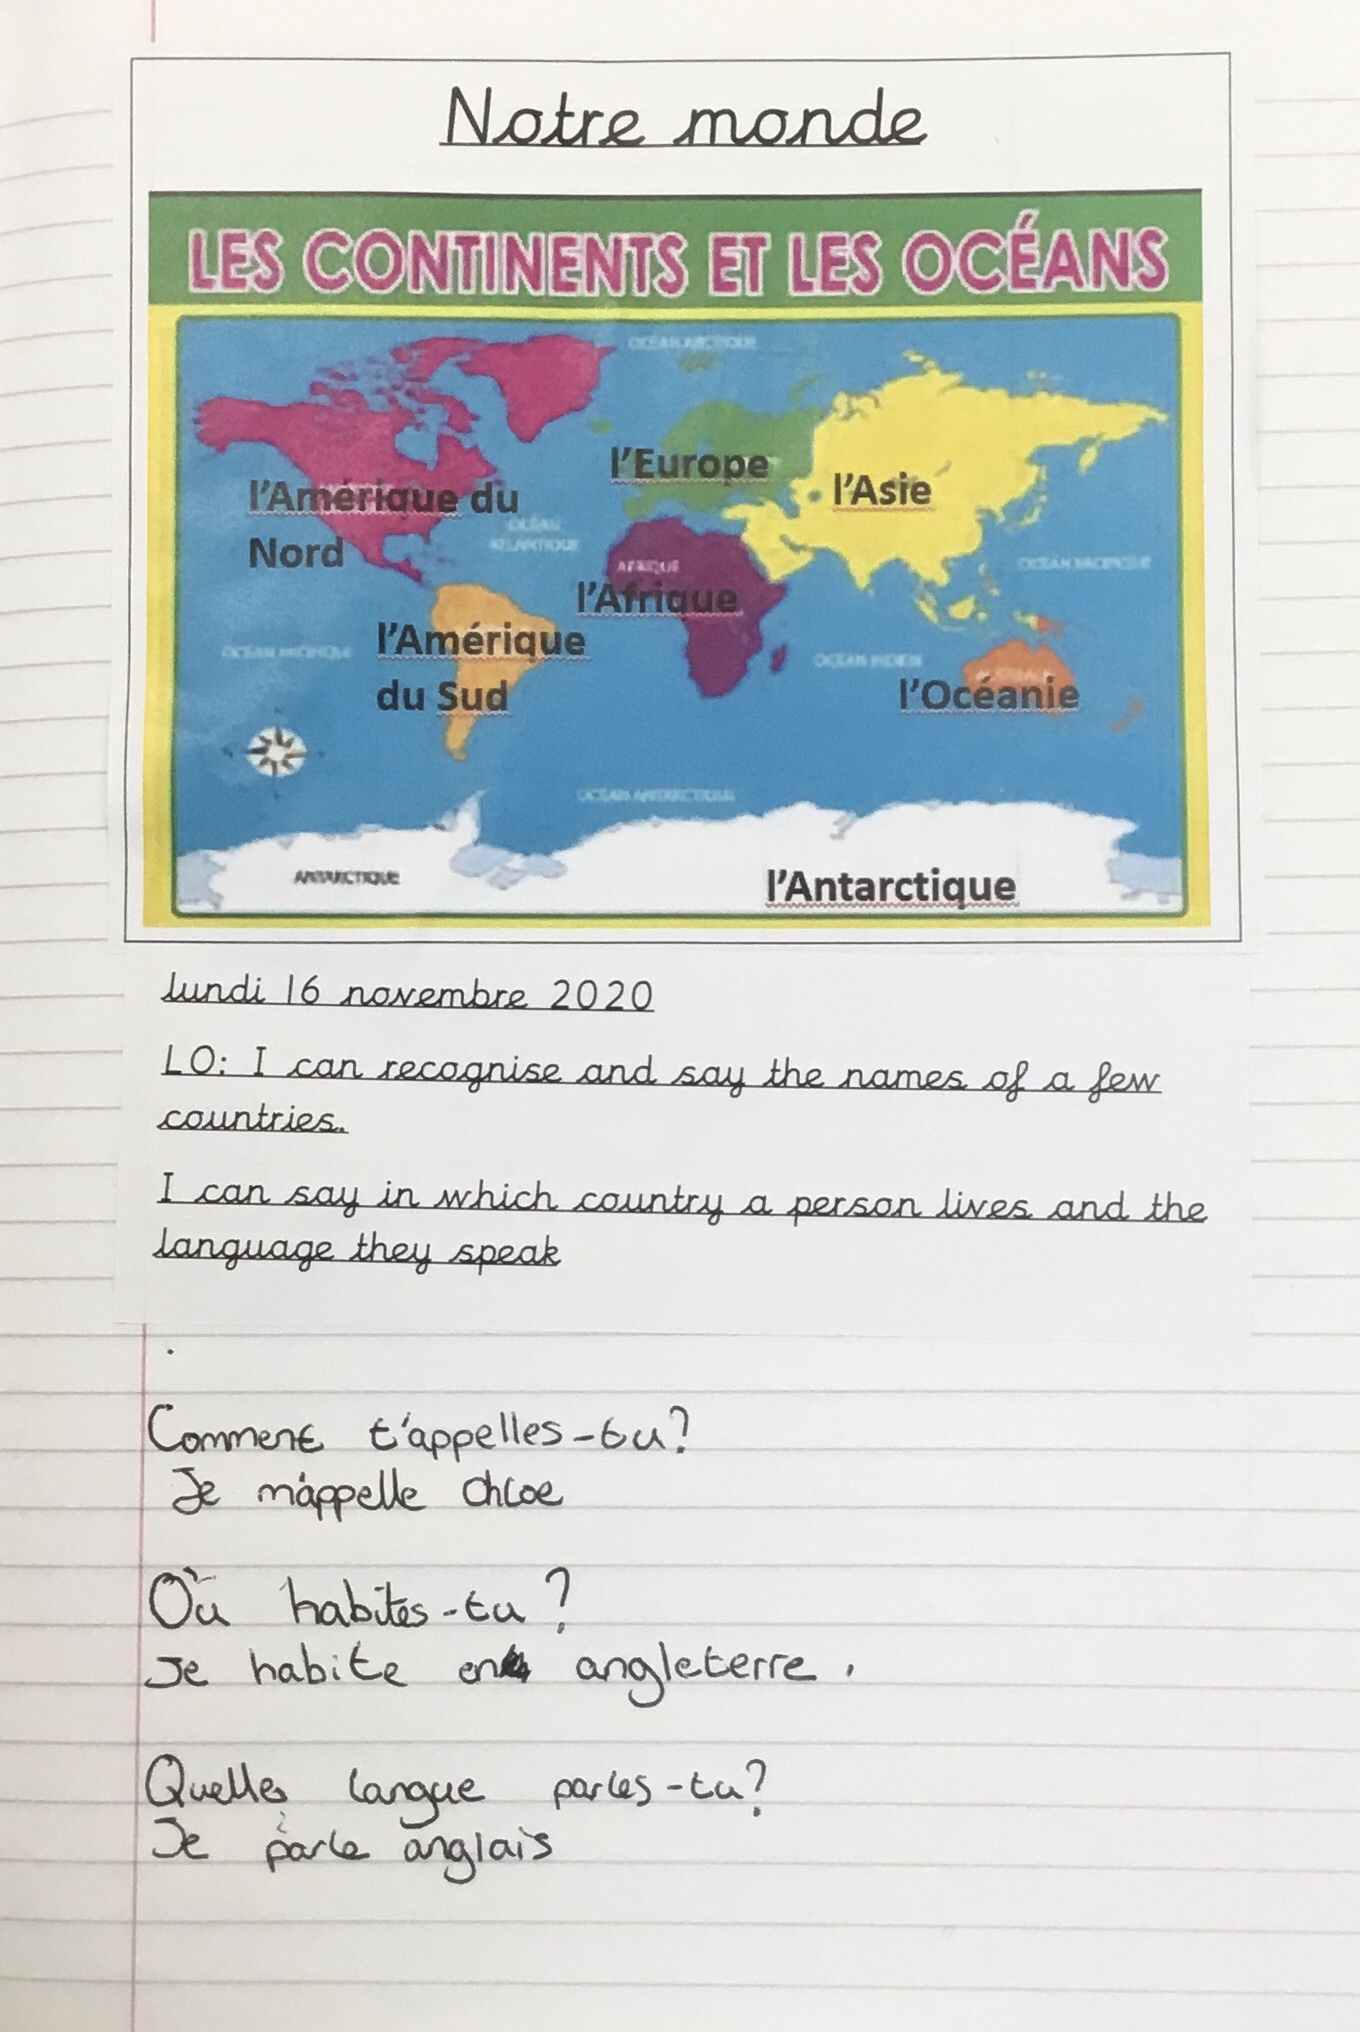 Notre monde
LES CONTINENTS ET LES OCÉANS
OCÉAN ARCTIQUE
l'Europe
l'Asie
l'Amérique du
Nord
OCÉAN
ATLANTIQUE
OCÉAN PACIFIQUE
AFRIQUE
l'Afrique
l'Amérique
du Sud
OCÉAN PACIFIQUE
OCÉAN INDIEN
AUSTRALIE
l'Océanie
OCÉAN ANTARCTIQUE
ANTARCTIQUE
l'Antarctique
lundi 16 novembre 2020
LO: I can recognise and say the names of a few
countries.
I can say in which country a person lives and the
language they speak
Comment t'appelles-tu?
Je m'appelle Chloe
Où habites-tu?
Je habite en angleterre.
Quelles langue parles-tu?
Je parle anglais